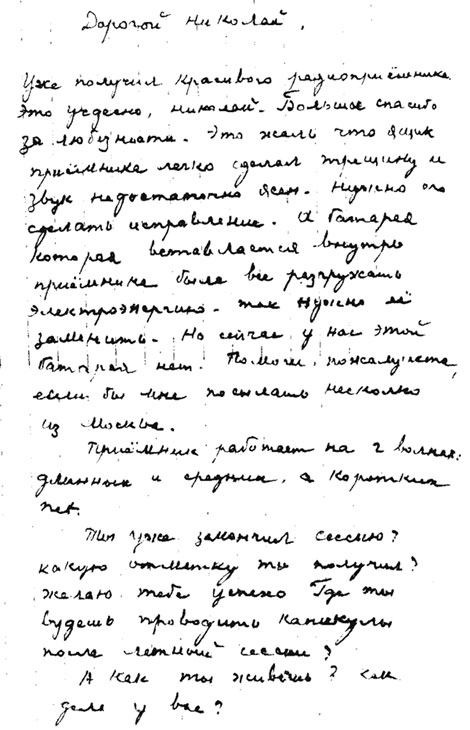 Дорогой Николай,
Уже получил красивого радиоприёмника.
Это чудесно, николай. Большое спасибо
за любезности. Это жаль что ящик
приёмника легко сделал трещину и
звук недостаточно ясен. Нужно его
сделать исправление. И батарея
которая вставлается внутрь
приёмника была все разгружать
электроэнергию. так нужно её
заменить. Но сейчас у нас этой
батарея нет. Помочи, пожалуйста,
если бы мне посылать несколько
из Москве.
Приёмник работает на 2 волнах:
длинных и средних, а коротких
нет.
Ты уже закончил сессию?
какую отметку ты получил?
желаю тебе успехо Где ты
будешь проводить каникулы
после летный сессии?
А как ты живёшь? как
дела у вас?